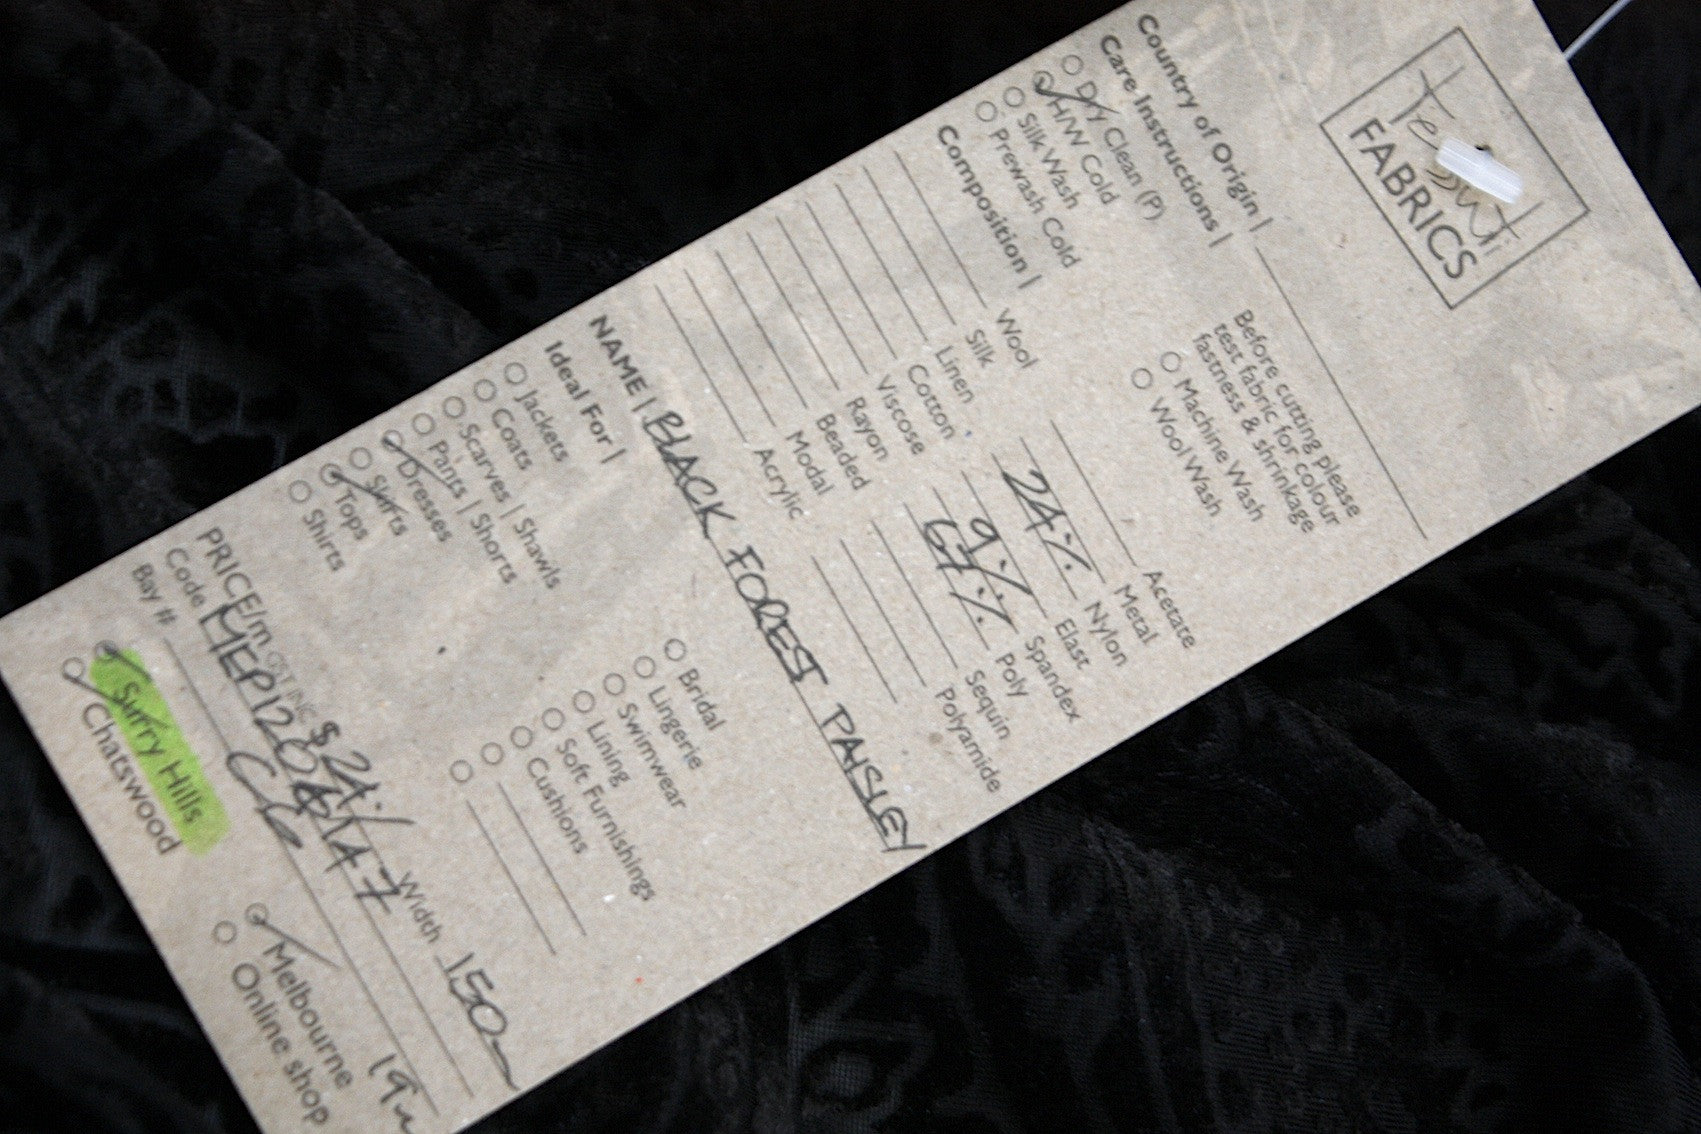 Tessuti
FABRICS
Country of Origin |
Care Instructions |
Dry Clean (P)
H/W Cold
Silk Wash
Prewash Cold
Before cutting please
test fabric for colour
fastness & shrinkage
Machine Wash
Wool Wash
Composition |
Wool
Silk
Linen
Cotton
Viscose
Rayon
Beaded
Modal
Acrylic
Acetate
Metal
24% Nylon
Elast
9% Spandex
67% Poly
Sequin
Polyamide
NAME | BLACK FOREST PAISLEY
Ideal For |
Jackets
Coats
Scarves | Shawls
Pants | Shorts
Dresses
Skirts
Tops
Shirts
Bridal
Lingerie
Swimwear
Lining
Soft Furnishings
Cushions
PRICE/m GST INC $24./ Width 150
Code
Bay #
Surry Hills
Chatswood
Melbourne
Online shop